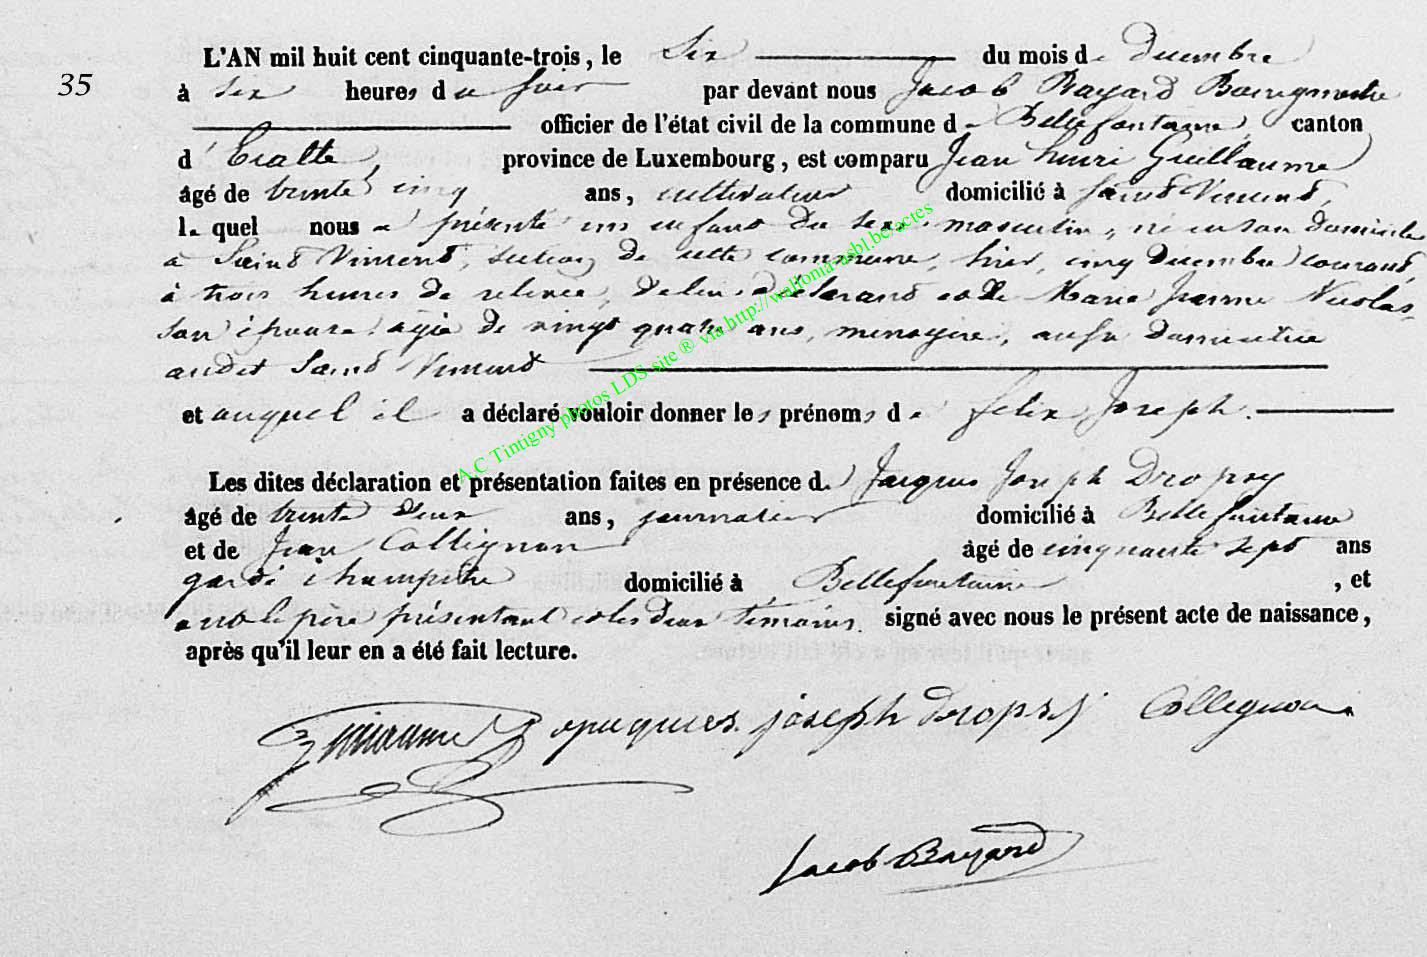 35
L'AN mil huit cent cinquante-trois, le Six du mois de décembre
à six heures du soir par devant nous Jacob Bayard Bourgmestre
officier de l'état civil de la commune de Bellefontaine, canton
d'Etalle, province de Luxembourg, est comparu Jean henri Guillaume
âgé de trente cinq ans, cultivateur domicilié à Saint Vincent,
lequel nous a présenté un enfant du sexe masculin, né en son domicile
à Saint Vincent, section de cette commune, hier, cinq décembre courant,
à trois heures de relevée, de lui déclarant et de Marie Jeanne Nicolas,
son épouse, agée de vingt quatre ans, menagère, aussi domiciliée
audit Saint Vincent
et auquel il a déclaré vouloir donner les prénoms de felix Joseph.
Les dites déclaration et présentation faites en présence de Jacques Joseph Dropsy
âgé de trente deux ans, journalier domicilié à Bellefontaine
et de Jean Collignon âgé de cinquante sept ans
garde champêtre domicilié à Bellefontaine, et
ont le père présentant et les deux témoins signé avec nous le présent acte de naissance,
après qu'il leur en a été fait lecture.
Guillaume jacques joseph dropsy Collignon
Jacob Bayard
A.C Tintigny photos LDS site ® via http://wallonia-asbl.be/actes